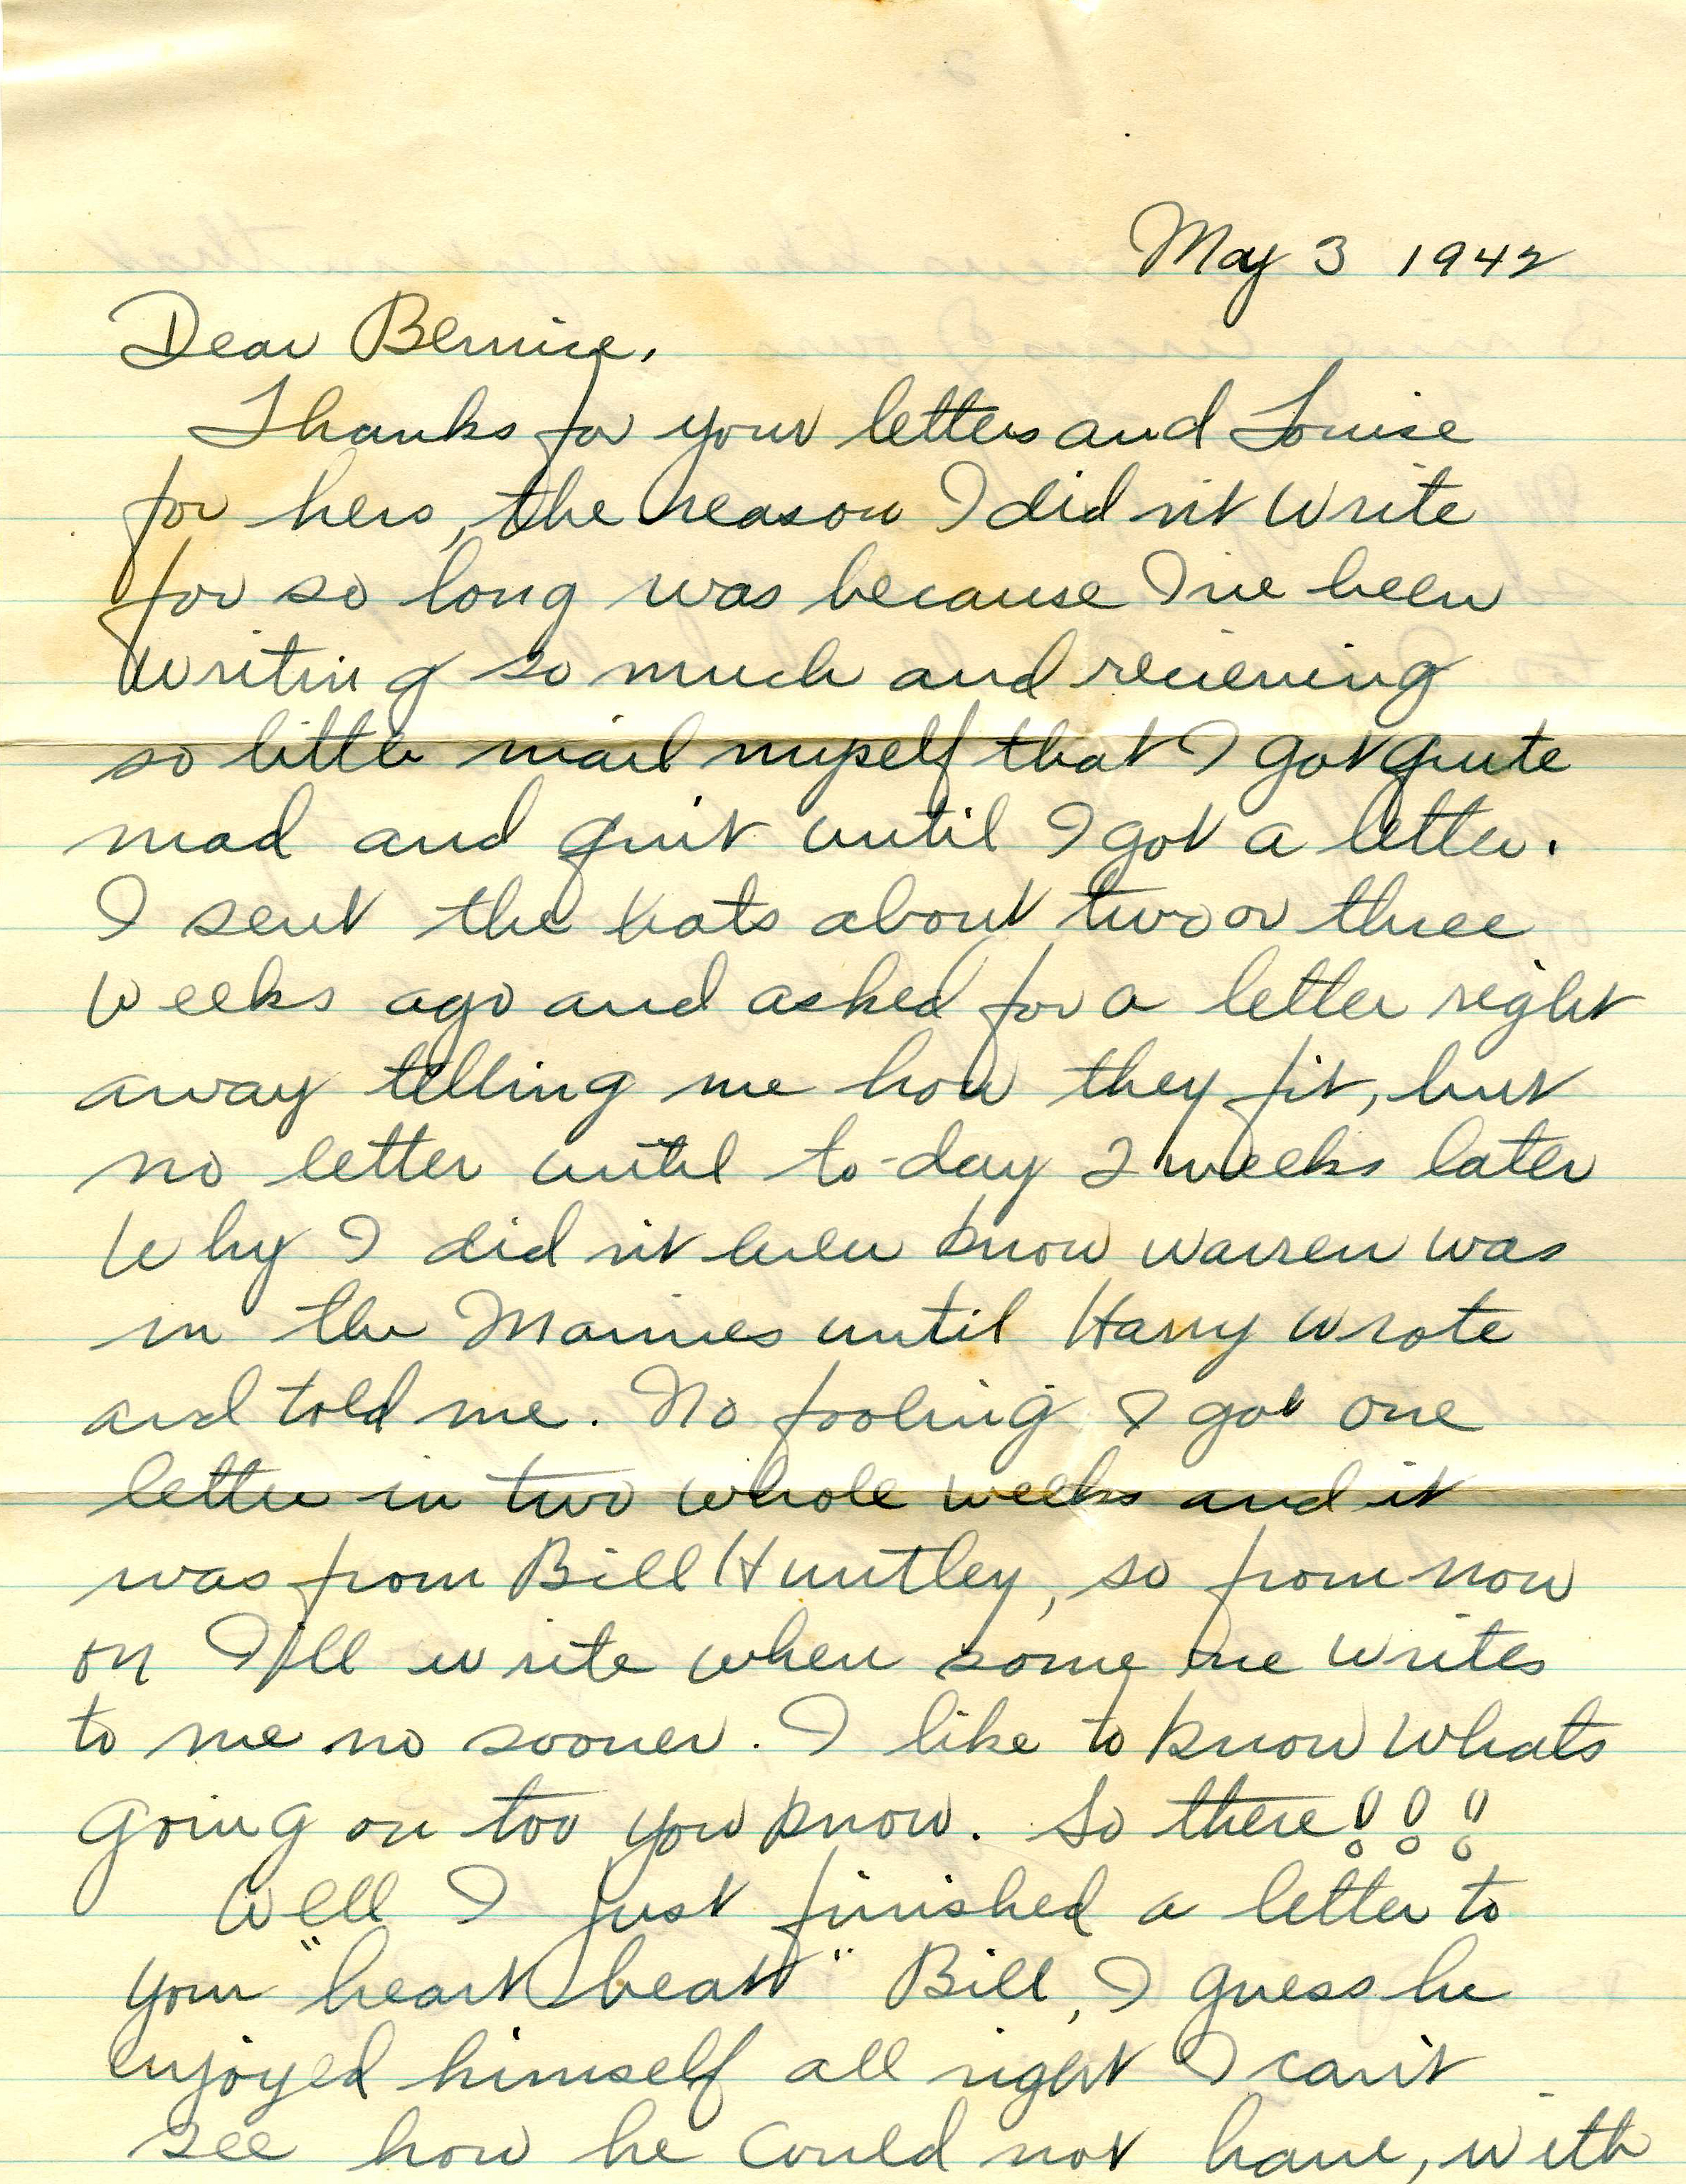 May 3 1942
Dear Bernice,
Thanks for your letters and Louise
for hers, the reason I did n't write
for so long was because I've been
writing so much and recieving
so little mail myself that I got quite
mad and quit until I got a letter.
I sent the hats about two or three
weeks ago and asked for a letter right
away telling me how they fit, but
no letter until to-day 2 weeks later
Why I did n't even know warren was
in the Marines until Harry wrote
and told me. No fooling I got one
letter in two whole weeks and it
was from Bill Huntley, so from now
on I'll write when some one writes
to me no sooner. I like to know whats
going on too you know. So there!!!
Well I just finished a letter to
your "heart beat" Bill, I guess he
enjoyed himself all right I can't
see how he could not have, with